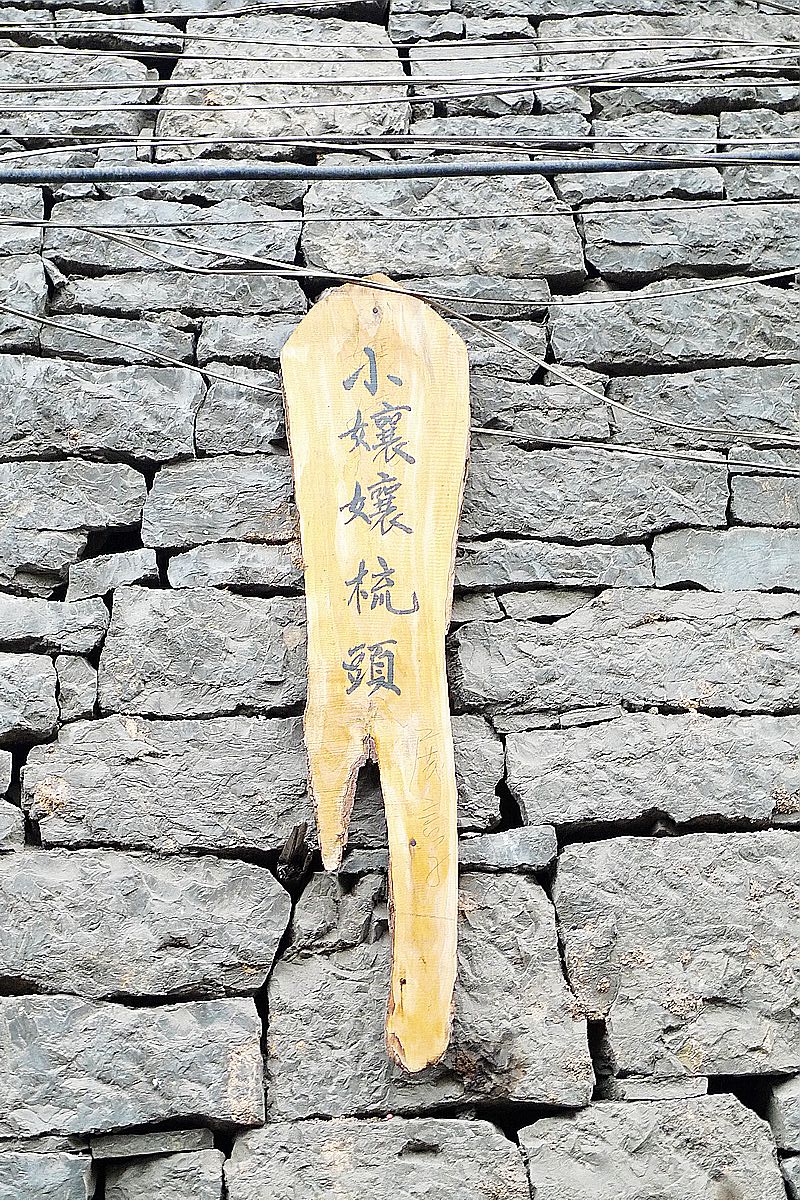 小孃孃梳頭